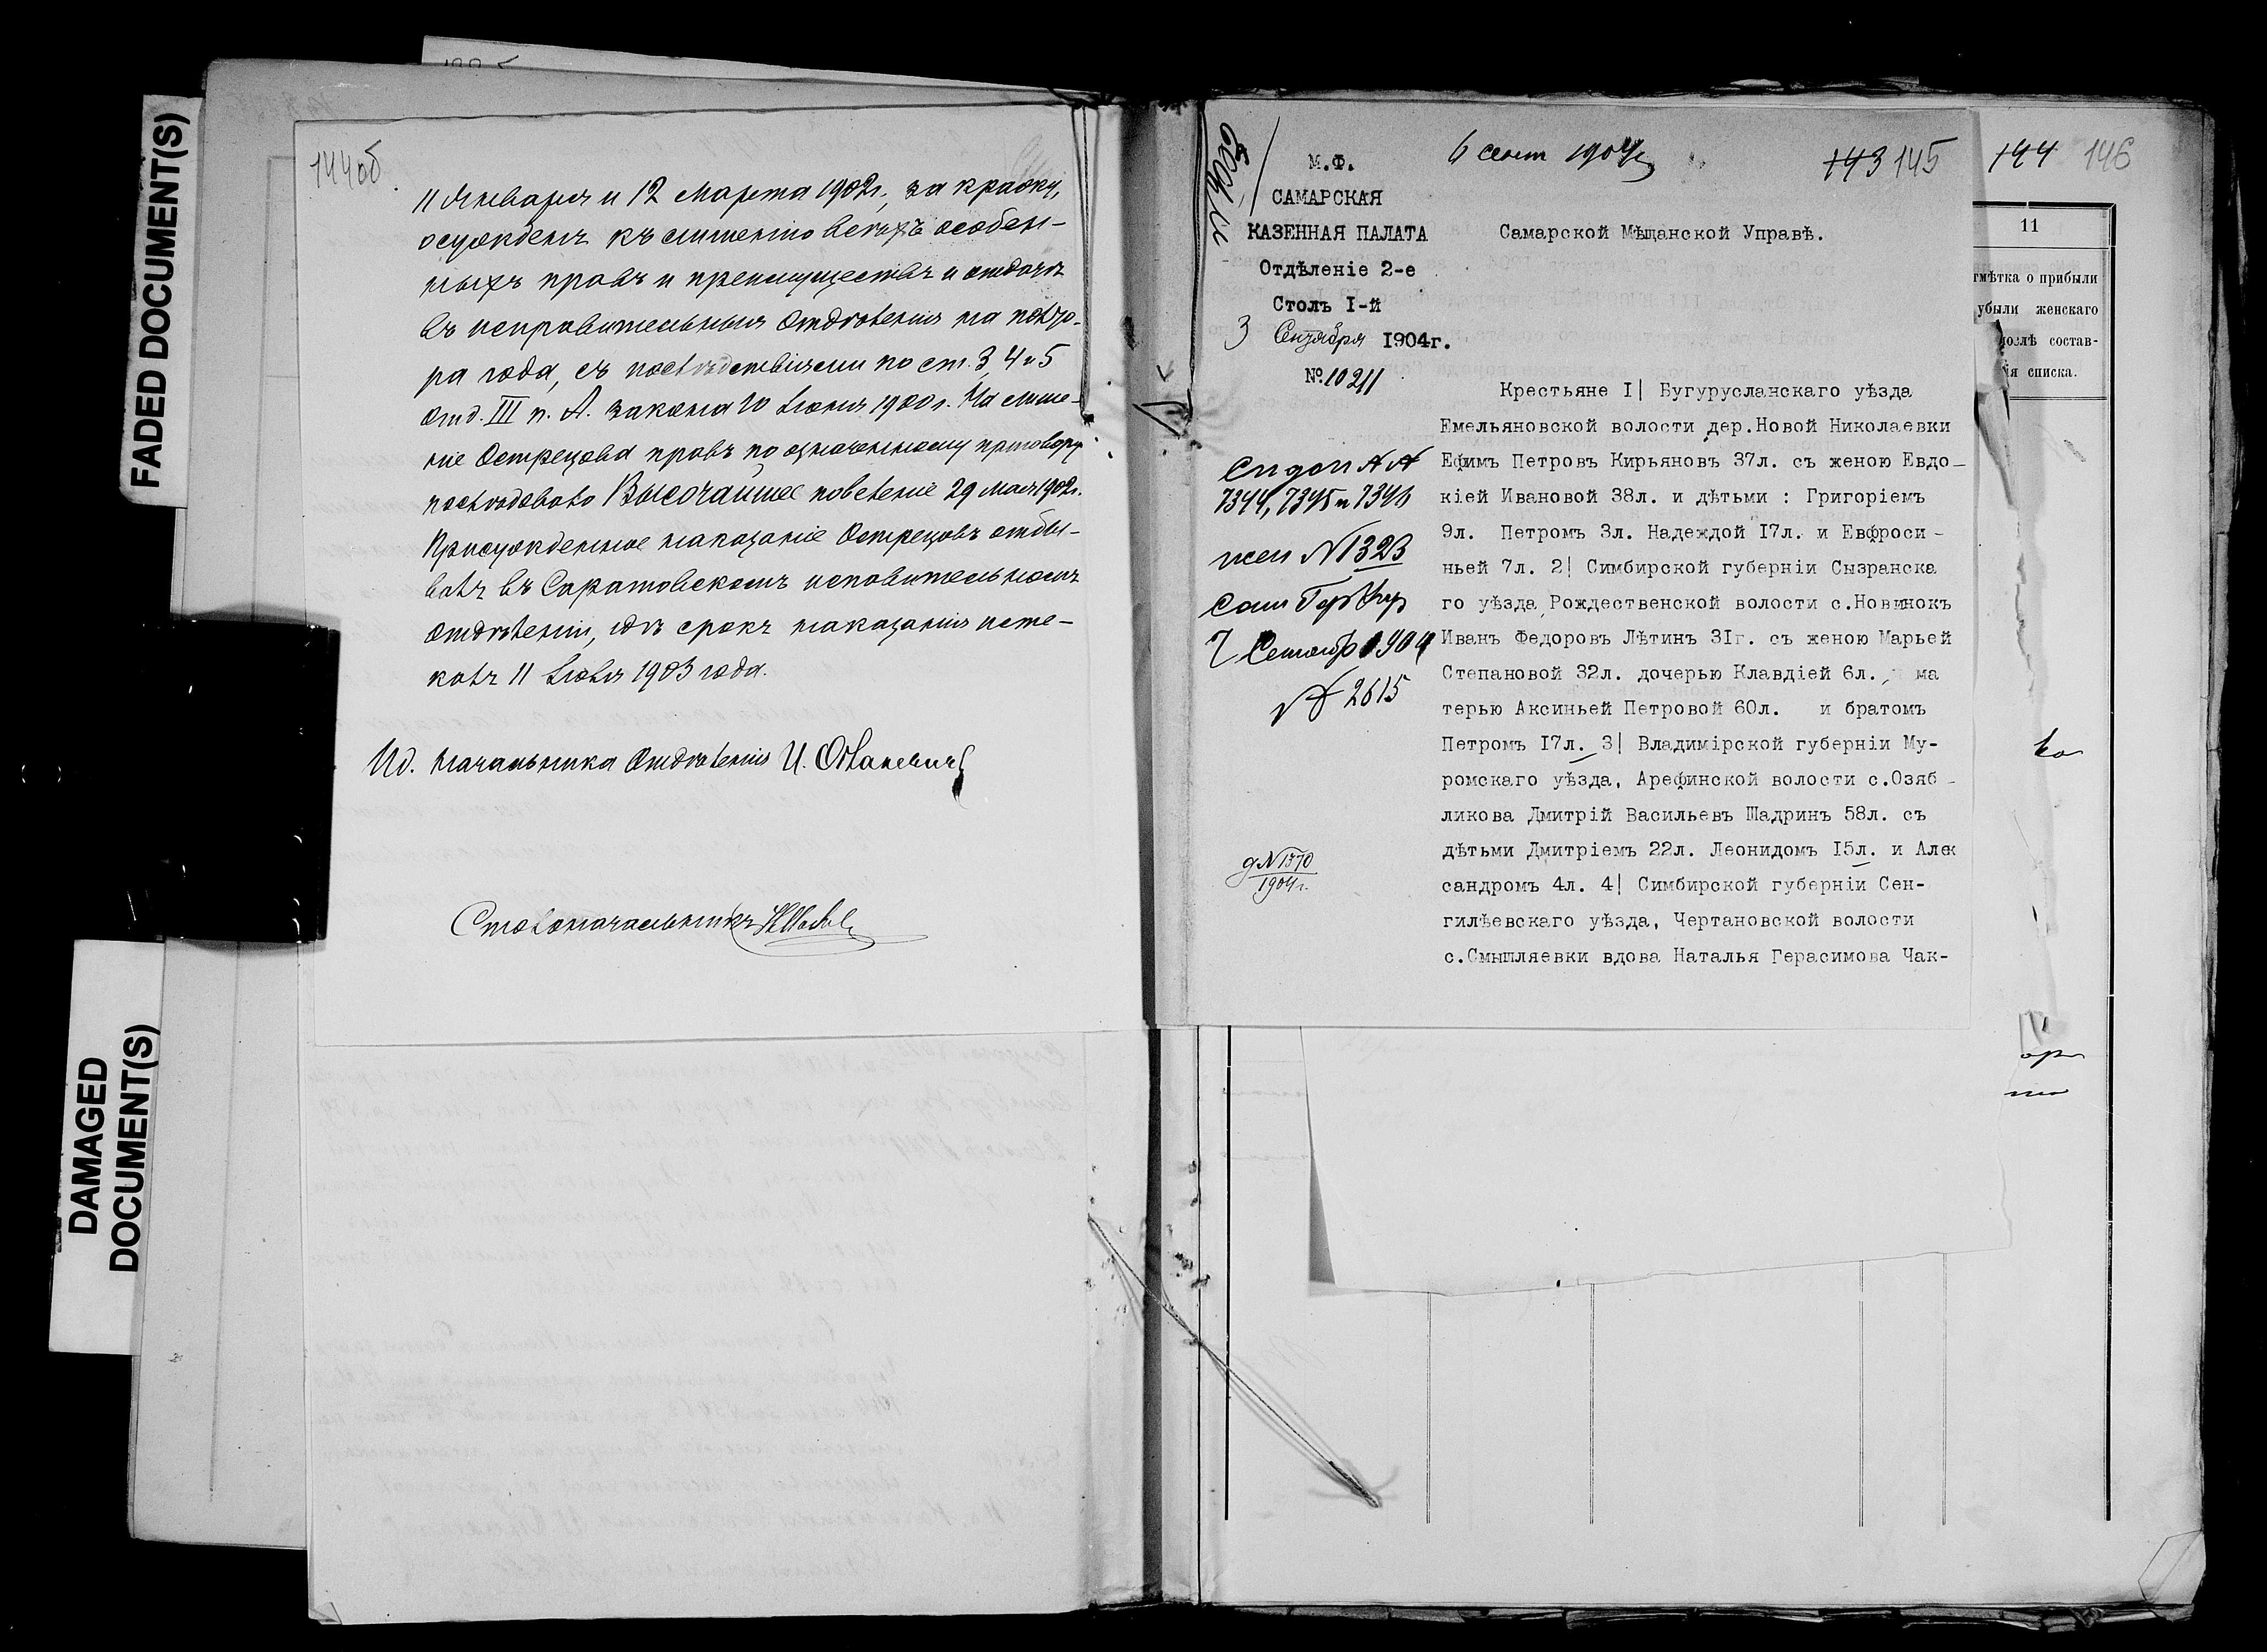 FADED DOCUMENT(S)
DAMAGED
DOCUMENT(S)
144об.
11 Января и 12 Марта 1902г., за кражу,
осужденъ къ лишенію всѣхъ особен-
ныхъ правъ и преимуществъ и отдачѣ
въ исправительныя отдѣленія на полто-
ра года, съ послѣдствіями по ст. 3, 4 и 5
отд. III п. А. закона 10 Іюня 1900г. На лише-
ніе Острецова правъ по означенному приговору
послѣдовало Высочайшее повелѣніе 29 Мая 1902г.
Присужденное наказаніе Острецовъ отбы-
валъ въ Саратовскомъ исправительномъ
отдѣленіи, гдѣ срокъ наказанія исте-
калъ 11 Іюля 1903 года.
Ид. Начальника Отдѣленія И.
Столоначальникъ
6 сент 1904г
143 145
144 146
М.Ф.
САМАРСКАЯ
КАЗЕННАЯ ПАЛАТА
Отдѣленіе 2-е
Столъ I-й
3 Сентября 1904г.
№ 10211
Самарской Мѣщанской Управѣ.
7344, 7345 и 7346
жен № 1323
7 Сентябр 1904
№ 2615
д№1370
1904г.
Крестьяне I| Бугурусланскаго уѣзда
Емельяновской волости дер.Новой Николаевки
Ефимъ Петровъ Кирьяновъ 37л. съ женою Евдо-
кіей Ивановой 38л. и дѣтьми : Григоріемъ
9л. Петромъ 3л. Надеждой I7л. и Евфроси-
ньей 7л. 2| Симбирской губерніи Сызранска
го уѣзда Рождественской волости с.Новинокъ
Иванъ Федоровъ Лѣтинъ 3Iг. съ женою Марьей
Степановой 32л. дочерью Клавдіей 6л., ма
терью Аксиньей Петровой 60л. и братомъ
Петромъ I7л. 3| Владимірской губерніи Му-
ромскаго уѣзда, Арефинской волости с.Озяб-
ликова Дмитрій Васильевъ Шадринъ 58л. съ
дѣтьми Дмитріемъ 22л. Леонидомъ I5л. и Алек
сандромъ 4л. 4| Симбирской губерніи Сен-
гилѣевскаго уѣзда, Чертановской волости
с.Смышляевки вдова Наталья Герасимова Чак-
11
тмѣтка о прибыли
убыли женскаго
послѣ состав-
ія списка.